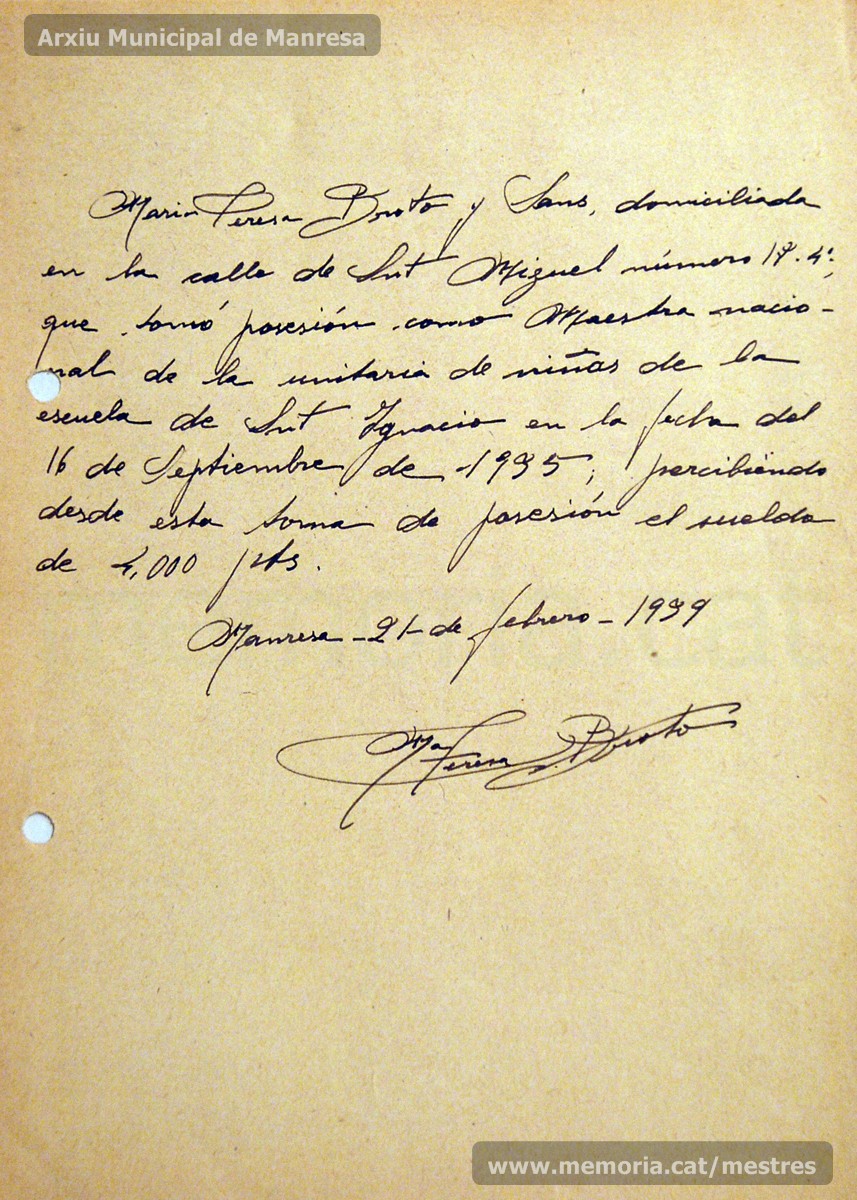 Arxiu Municipal de Manresa
Maria Teresa Broto y Sans, domiciliada
en la calle de Snt Miguel número 17. 4º,
que tomó posesión como Maestra nacio-
nal de la unitaria de niñas de la
escuela de Snt Ignacio en la fecha del
16 de Septiembre de 1935, percibiendo
desde esta toma de posesión el sueldo
de 4,000 pts.
Manresa - 21 - de febrero - 1939
Mª Teresa Broto
www.memoria.cat/mestres